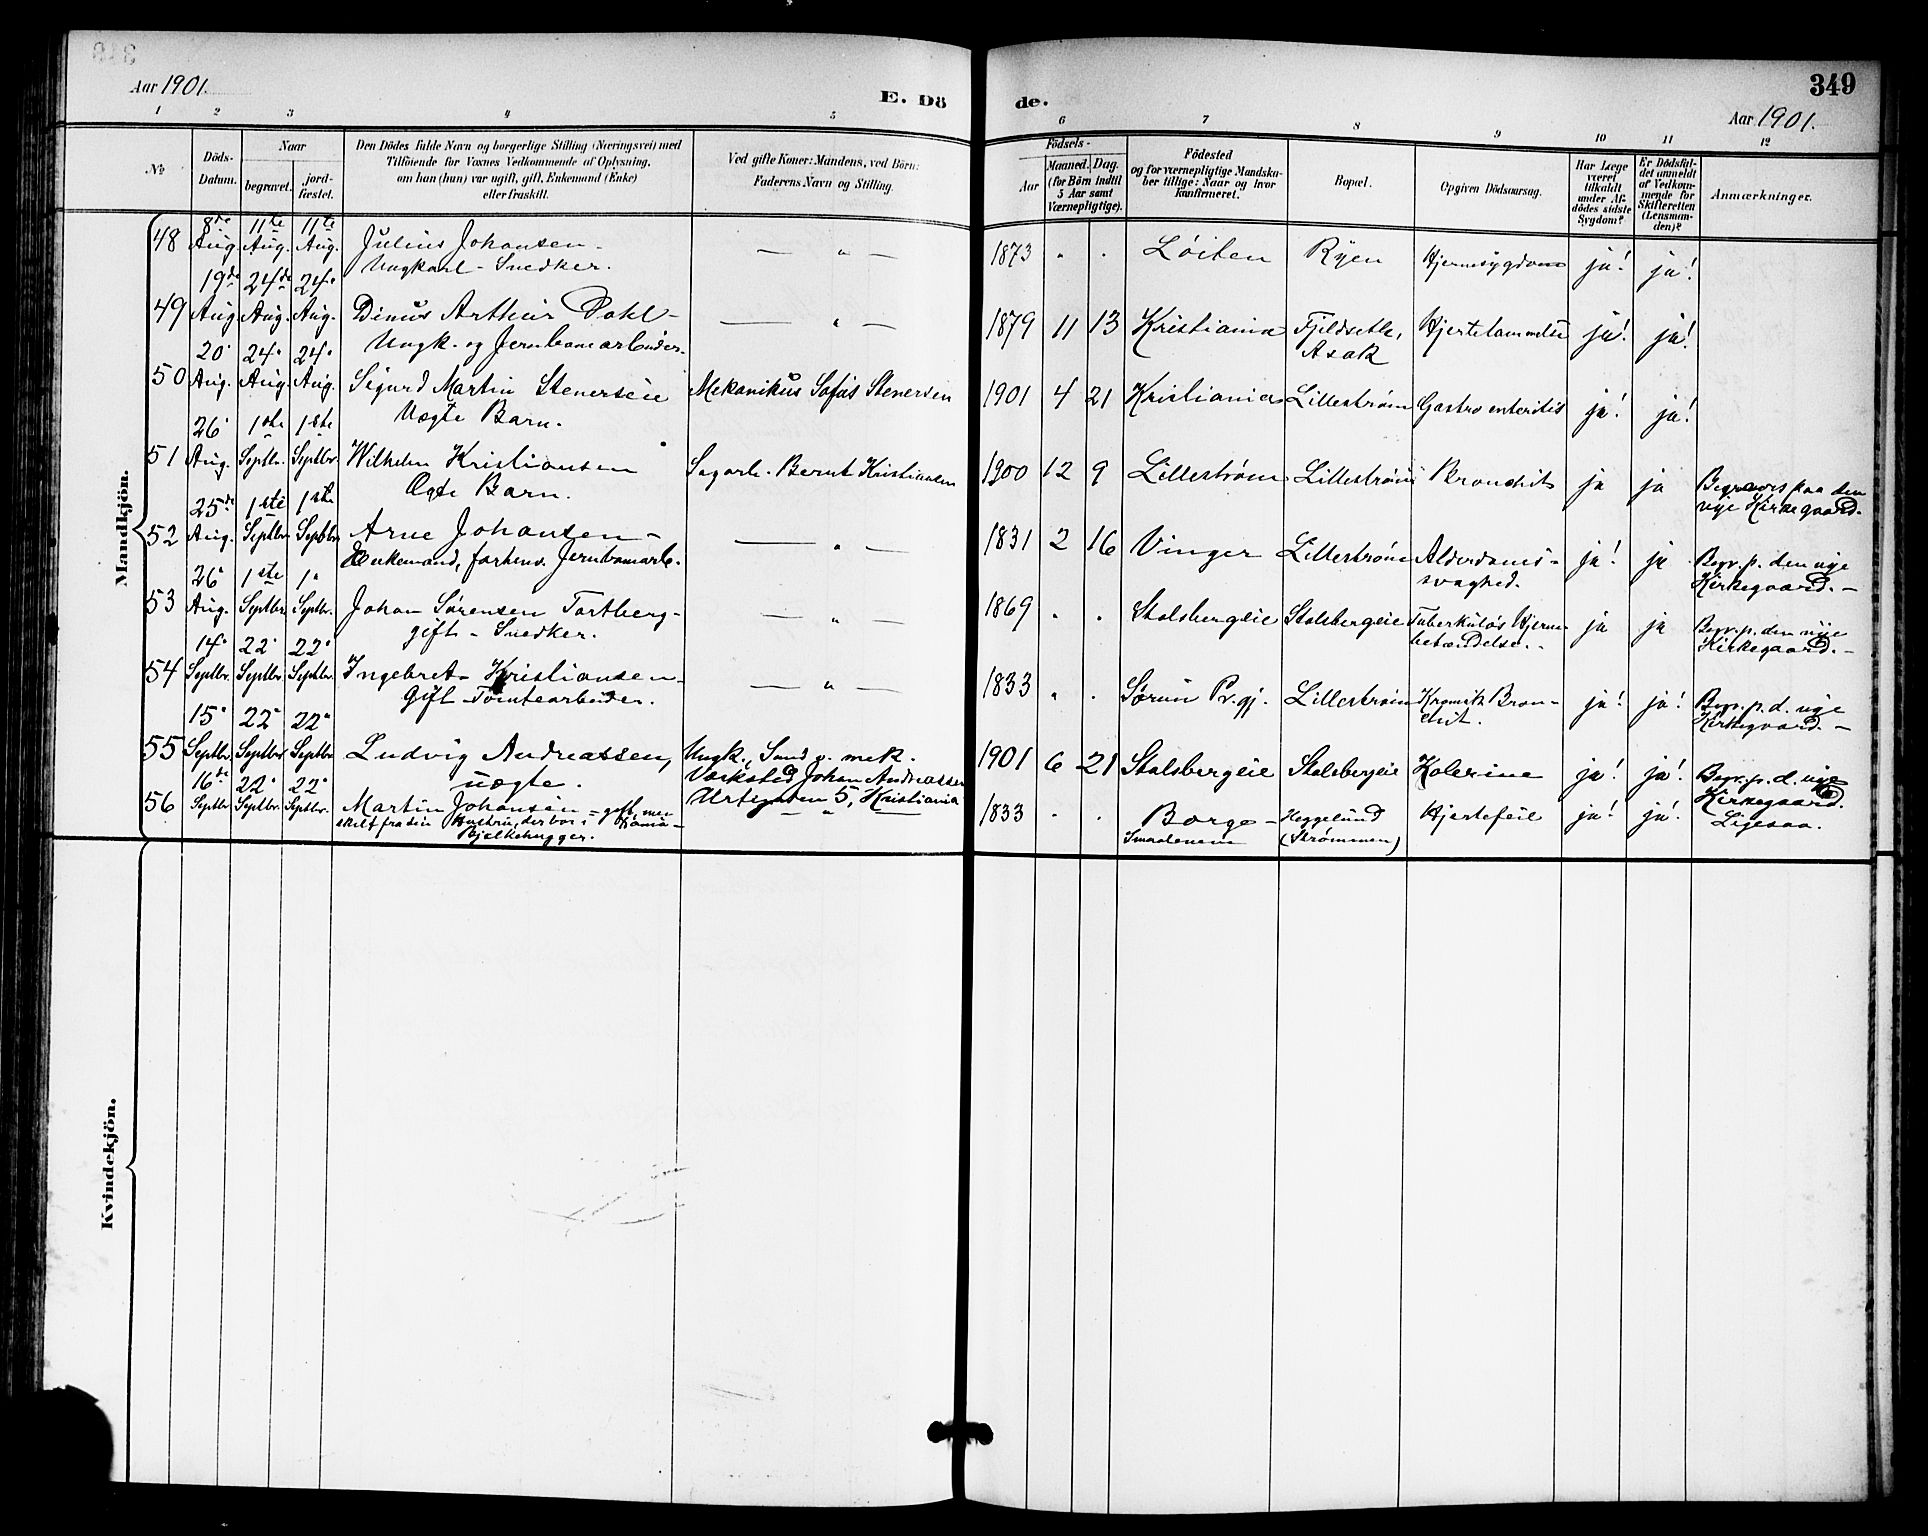 349
Aar 1901.
E. Dö
de.
Aar 1901.
1 2 3 4 5 6 7 8 9 10 11 12
№
Döds-
Datum.
Naar
begravet.
jord-
fæstet.
Den Dödes fulde Navn og borgerlige Stilling (Næringsvei) med
Tilföiende for Voxnes Vedkommende af Oplysning,
om han (hun) var ugift, gift, Enkemand (Enke)
eller fraskilt.
Ved gifte Koner: Mandens, ved Börn:
Faderens Navn og Stilling.
Födsels-
Aar
Maaned. Dag.
(for Börn indtil
5 Aar samt
Værnepligtige).
Födested
og for værnepligtige Mandska-
ber tillige: Naar og hvor
konfirmeret.
Bopæl.
Opgiven Dödsaarsag.
Har Læge
været
tilkaldt
under Af-
dödes sidste
Sygdom?
Er Dödsfal-
det anmeldt
af Vedkom-
mende for
Skifteretten
(Lensman-
den)?
Anmærkninger.
Mandkjön.
8de 11te 11te
48 Aug. Aug. Aug. Julius Johansen - — " — 1873 " " Løiten Ryen Hjernesygdom ja! ja!
Ungkarl - Snedker.
19de 24de 24"
49 Aug Aug. Aug. Dinus Arthur Dahl - — " — 1879 11 13 Kristiania Fjeldsetle, Hjertelammelse ja! ja!
Ungk. og Jernbanearbeider. Asak
20" 24" 24"
50 Aug. Aug. Aug. Sigurd Martin Stenersen Mekanikus Sofus Stenersen 1901 4 21 Kristiania Lillestrøm Gastro enteritis ja! ja!
Uægte Barn.
26" 1ste 1ste
51 Aug. Septbr. Septbr. Wilhelm Kristiansen Sagarb. Bernt Kristiansen 1900 12 9 Lillestrøm Lillestrøm Bronchit ja ja Begraves paa den
Ægte Barn. nye Kirkegaard.
25de 1ste 1ste
52 Aug. Septbr Septbr Arne Johansen - — " — 1831 2 16 Vinger Lillestrøm Alderdoms- ja! ja Begr. p. den nye
Enkemand, forhenv. Jernbanearb. svaghed. Kirkegaard. -
26" 1ste 1"
53 Aug. Septbr. Septbr. Johan Sørensen Tortberg - — " — 1869 " " Stalsbergeie Stalsbergeie Tuberkuløs Hjerne- ja ja Begr. p. den nye
gift - Snedker. betændelse. Kirkegaard. -
14" 22" 22"
54 Septbr. Septbr. Septbr. Ingebret Kristiansen - — " — 1833 " " Sørum Pr.gj. Lillestrøm Kronisk Bron- ja! ja! Begr. p. d. nye
Gift - Tomtearbeider. chit. Kirkegaard. -
15" 22" 22"
55 Septbr. Septbr. Septbr Ludvig Andreassen, Ungk., Smed v. mek. 1901 6 21 Stalsbergeie Stalsbergeie Kolerine ja! ja! Begr. p. d. nye
uægte. Værksted Johan Andreassen Kirkegaard.
16de 22" 22" Urtegaten 5, Kristiania
56 Septbr Septbr. Septbr. Martin Johansen - gift, men — " — 1833 " " Borge - Heggelund Hjertefeil ja! ja! Ligesaa.
skilt fra sin Hustru, der bor i Smaalenene (Strømmen)
Bjelkehugger.
Kvindekjön.